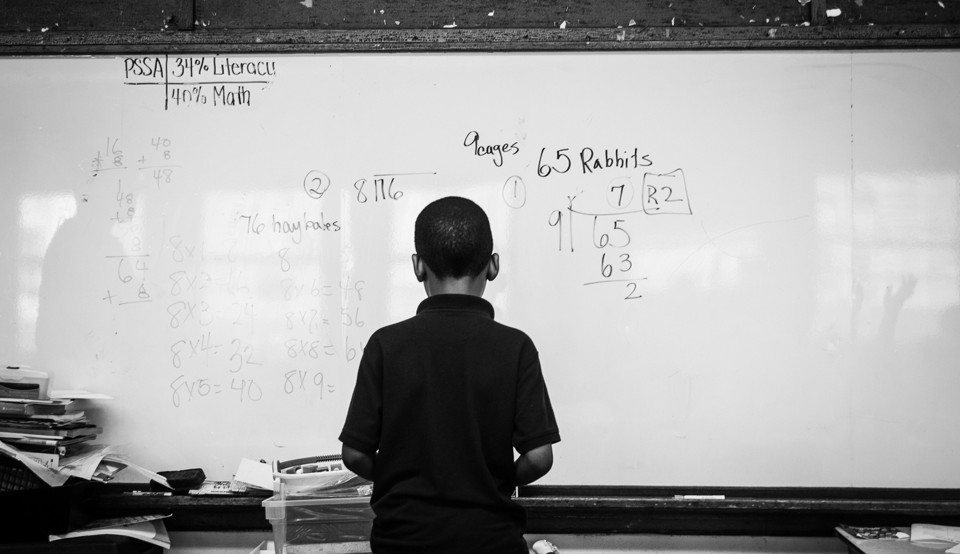 PSSA 34% Literacy
40% Math
16
+ 8
40
+ 8
48
48
+ 8
64
+ 8
9 cages
65 Rabbits
② 8 76
76 haybales
① 7 R2
9 65
63
2
8x
8
8x2 16
8x6= 48
8x3 24
8x7= 56
8x4= 32
8x8= 6
8x5= 40
8x9=